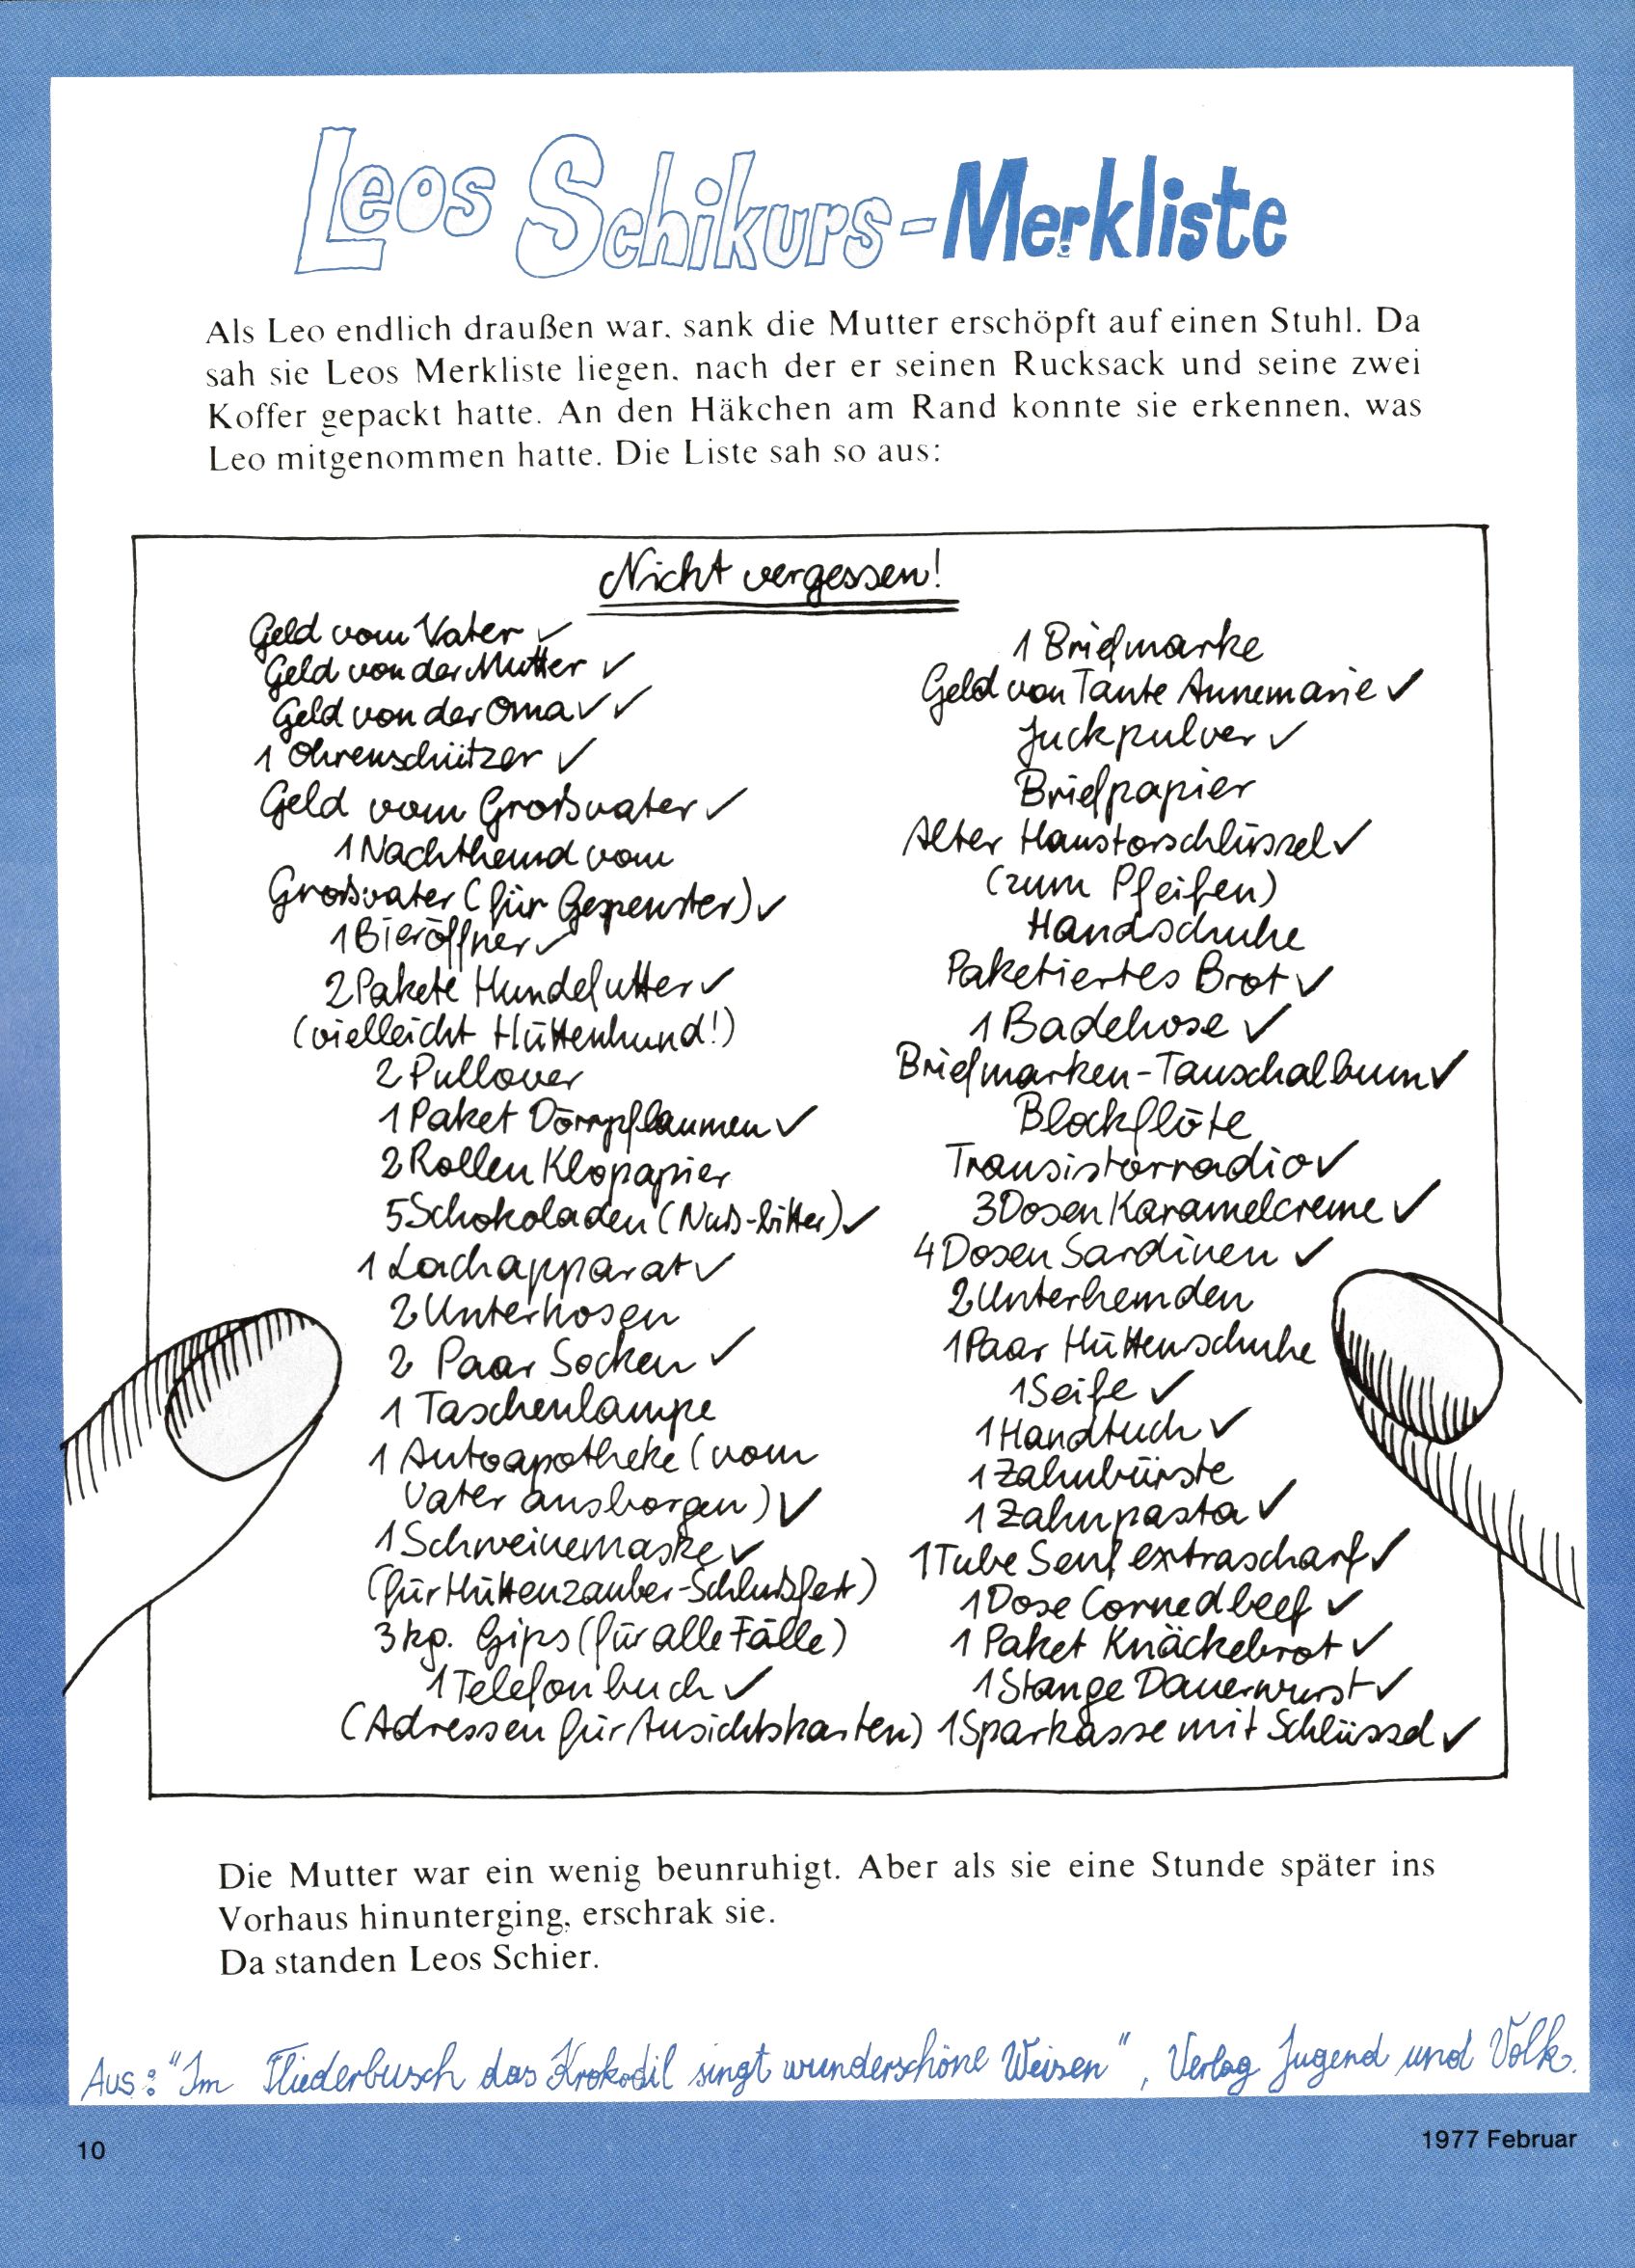 Leos Schikurs-Merkliste
Als Leo endlich draußen war, sank die Mutter erschöpft auf einen Stuhl. Da
sah sie Leos Merkliste liegen, nach der er seinen Rucksack und seine zwei
Koffer gepackt hatte. An den Häkchen am Rand konnte sie erkennen, was
Leo mitgenommen hatte. Die Liste sah so aus:
Nicht vergessen!
Geld vom Vater ✓
Geld von der Mutter ✓
Geld von der Oma ✓ ✓
1 Ohrenschützer ✓
Geld vom Großvater ✓
1 Nachthemd vom
Großvater (für Gespenster) ✓
1 Bieröffner ✓
2 Pakete Hundefutter ✓
(vielleicht Hüttenhund!)
2 Pullover
1 Paket Dörrpflaumen ✓
2 Rollen Klopapier
5 Schokoladen (Nuß-bitter) ✓
1 Lachapparat ✓
2 Unterhosen
2 Paar Socken ✓
1 Taschenlampe
1 Autoapotheke (vom
Vater ausborgen) ✓
1 Schweinemaske ✓
(für Hüttenzauber-Schlußfest)
3 kg. Gips (für alle Fälle)
1 Telefonbuch ✓
(Adressen für Ansichtskarten)
1 Briefmarke
Geld von Tante Annemarie ✓
Juckpulver ✓
Briefpapier
Alter Haustorschlüssel ✓
(zum Pfeifen)
Handschuhe
Paketiertes Brot ✓
1 Badehose ✓
Briefmarken-Tauschalbum ✓
Blockflöte
Transistorradio ✓
3 Dosen Karamelcreme ✓
4 Dosen Sardinen ✓
2 Unterhemden
1 Paar Hüttenschuhe
1 Seife ✓
1 Handtuch ✓
1 Zahnbürste
1 Zahnpasta ✓
1 Tube Senf extrascharf ✓
1 Dose Cornedbeef ✓
1 Paket Knäckebrot ✓
1 Stange Dauerwurst ✓
1 Sparkasse mit Schlüssel ✓
Die Mutter war ein wenig beunruhigt. Aber als sie eine Stunde später ins
Vorhaus hinunterging, erschrak sie.
Da standen Leos Schier.
Aus: "Im Fliederbusch das Krokodil singt wunderschöne Weisen", Verlag Jugend und Volk.
10
1977 Februar